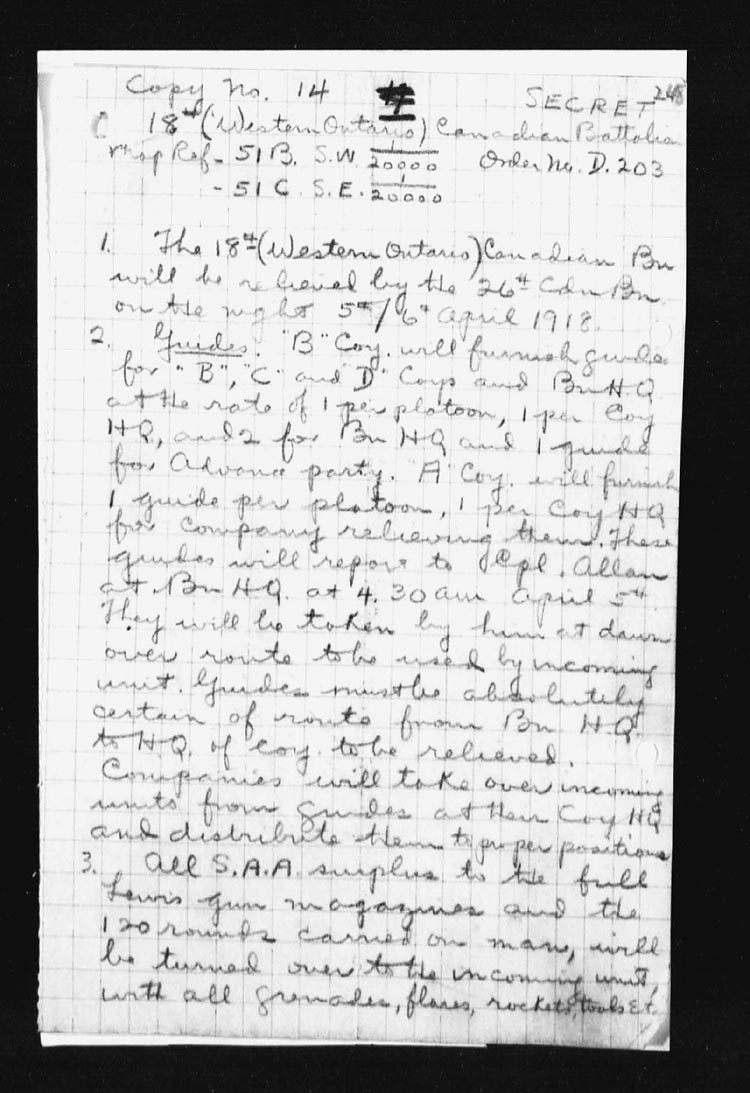 Copy No. 14 4 SECRET 248
18th (Western Ontario) Canadian Battalion
Map Ref - 51 B. S.W. 1/20000 Order No. D. 203
- 51 C. S.E. 1/20000
1. The 18th (Western Ontario) Canadian Bn
will be relieved by the 26th Cdn Bn.
on the night 5th/6th April 1918.
2. Guides. "B" Coy. will furnish guides
for "B", "C" and "D" Coys and Bn H.Q.
at the rate of 1 per platoon, 1 per Coy
HQ, and 2 for Bn HQ and 1 guide
for Advance party. A Coy. will furnish
1 guide per platoon, 1 per Coy HQ
for company relieving them. These
guides will report to Cpl. Allan
at Bn HQ. at 4.30 am April 5th
They will be taken by him at dawn
over route to be used by incoming
unit. Guides must be absolutely
certain of route from Bn H.Q.
to H.Q. of Coy. to be relieved.
Companies will take over incoming
units from guides at their Coy HQ
and distribute them to proper positions
3. All S.A.A. surplus to the full
Lewis gun magazines and the
120 rounds carried on man, will
be turned over to the incoming unit,
with all grenades, flares, rockets, tools Etc.